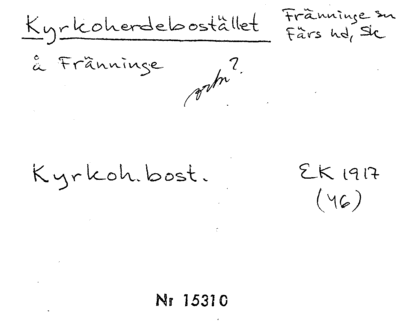 Kyrkoherdebostället
Fränninge sn
Färs hd, Sk
å Fränninge
ortn?
Kyrkoh.bost.
EK 1917
(46)
Nr 15310